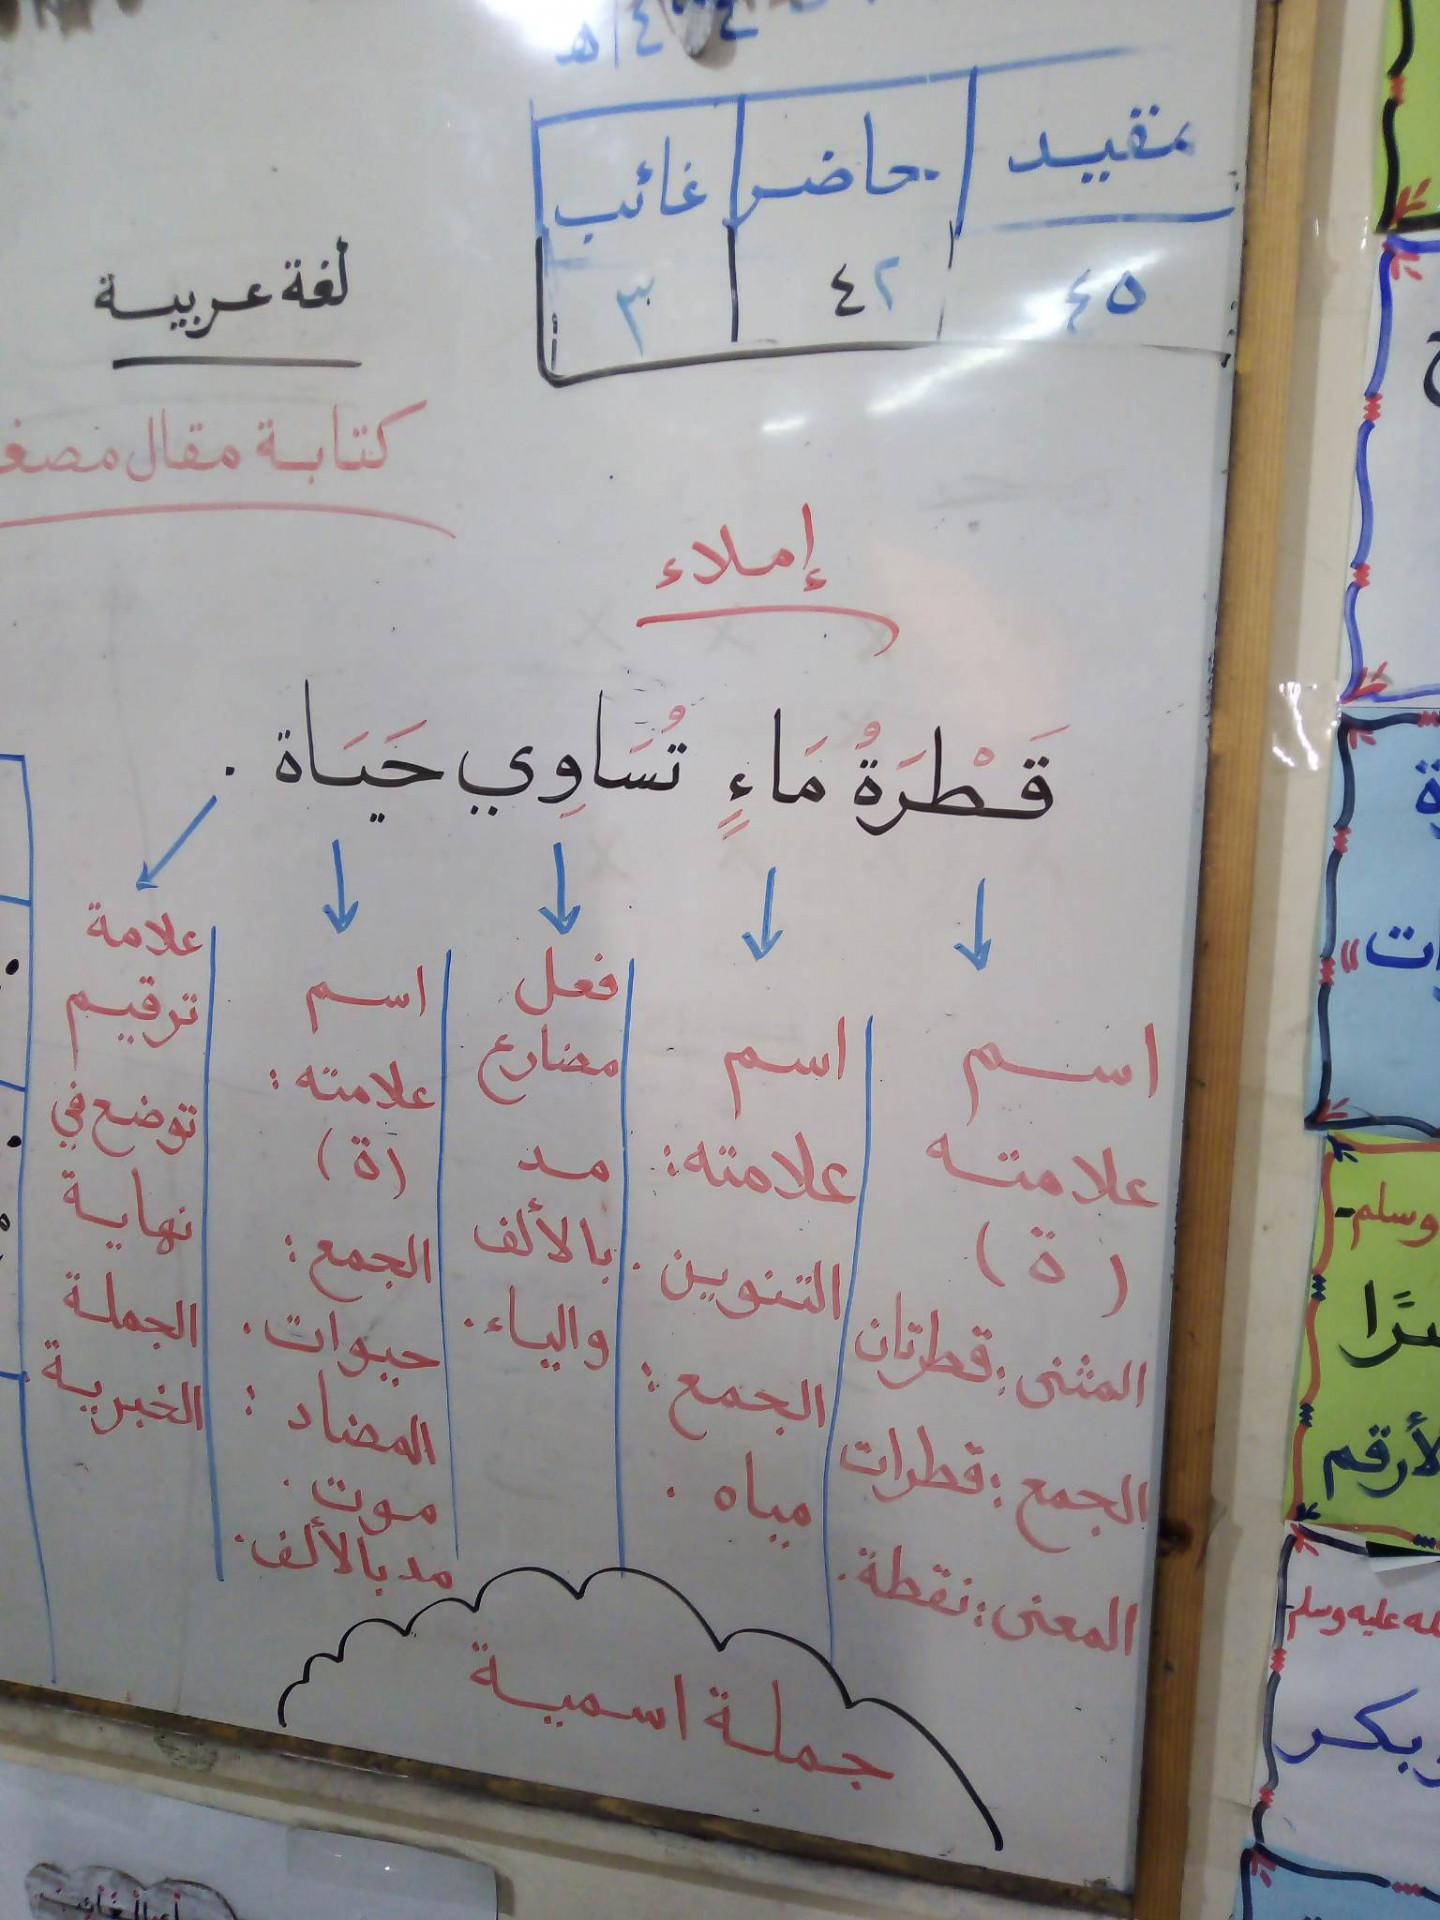 مقيد حاضر غائب
٤٥ ٤٢ ٣
لغة عربية
كتابة مقال
إملاء
قَطْرَةُ مَاءٍ تُسَاوِي حَيَاة .
اسم
علامته
(ة)
المثنى : قطرتان
الجمع : قطرات
المعنى : نقطة .
اسم
علامته :
التنوين .
الجمع :
مياه .
فعل
مضارع
مد
بالألف
والياء .
اسم
علامته :
(ة)
الجمع :
حيوات .
المضاد :
موت .
مد بالألف .
علامة
ترقيم
توضع في
نهاية
الجملة
الخبرية
جملة اسمية
وسلم
الأرقم
عليه وسلم
بكر